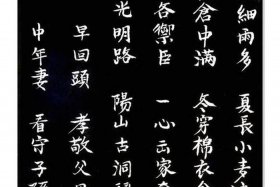 細雨多 夏長小麦
倉中滿 冬穿棉衣
各禦臣 一心云家
光明路 陽山古洞
早回頭 孝敬父
中年妻 看守子